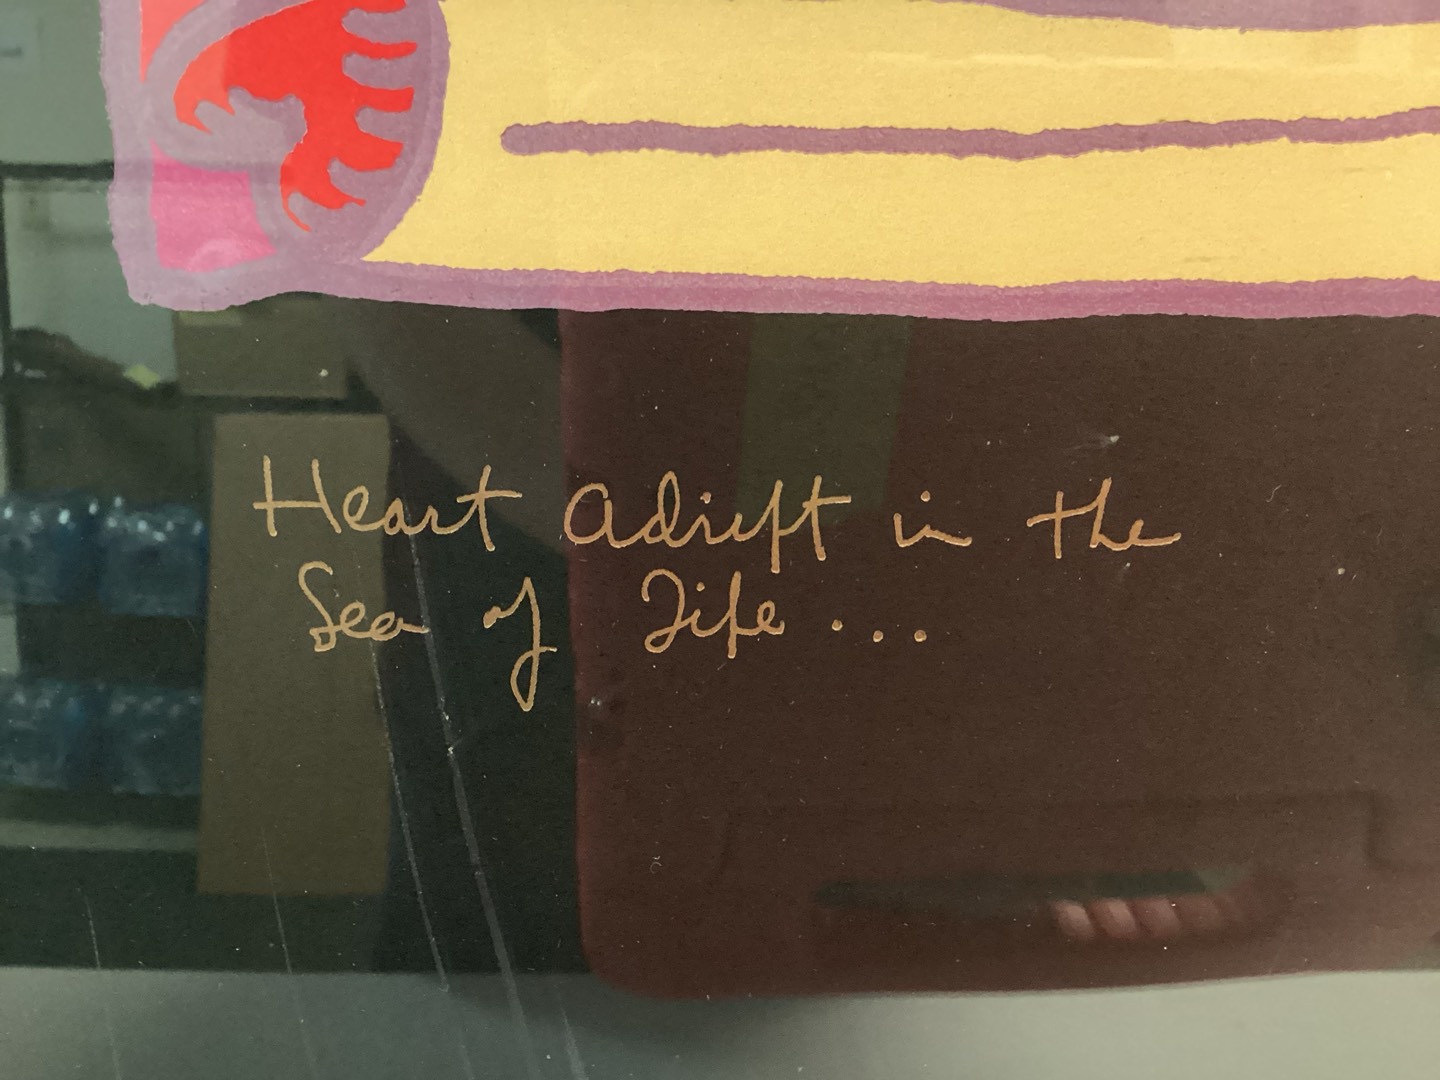 Heart Adrift in the
Sea of Life...